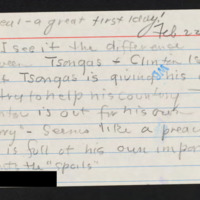 eal - a great first 1day!
Feb 22
I see it the difference
een Tsongas + Clinton is
t Tsongas is giving his
try to help his country
nton is out for his own
ry" - Seems like a preac
is full of his own impor
ts the "spoils"